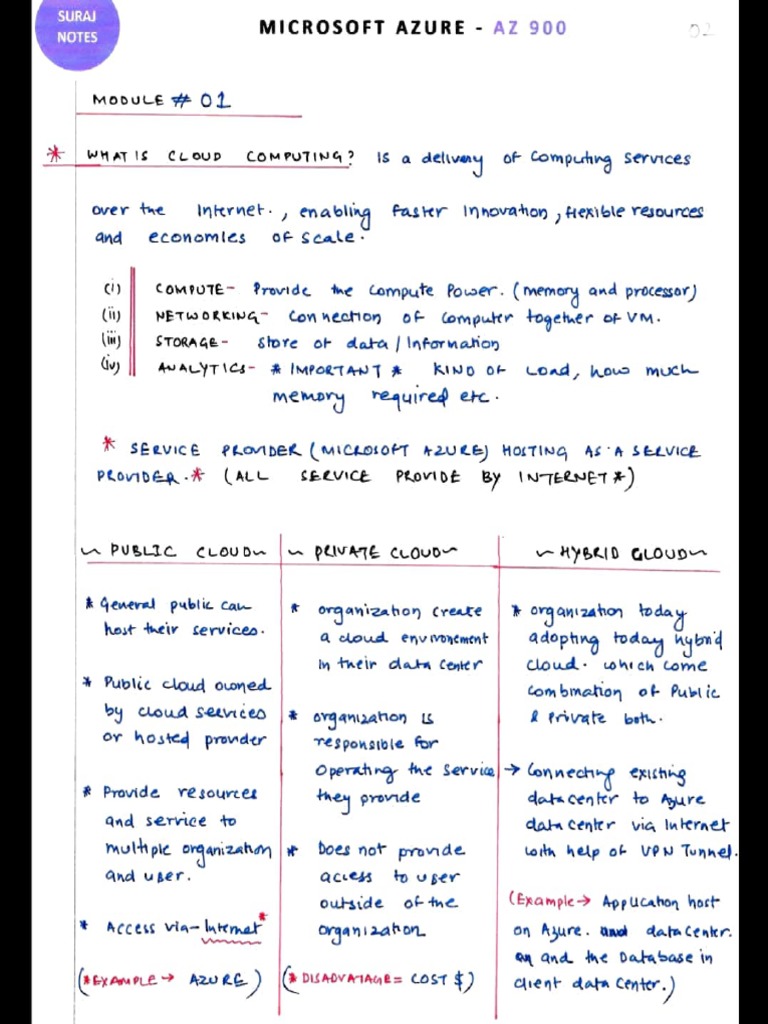 SURAJ
NOTES
MICROSOFT AZURE - AZ 900
02
MODULE # 01
* WHAT IS CLOUD COMPUTING? Is a delivery of computing services
over the Internet., enabling faster Innovation, flexible resources
and economies of scale.
(i) COMPUTE- Provide the compute Power. (memory and processor)
(ii) NETWORKING- Connection of computer together of VM.
(iii) STORAGE- Store of data/Information
(iv) ANALYTICS- * IMPORTANT * KIND OF Load, how much
memory required etc.
* SERVICE PROVIDER (MICROSOFT AZURE) HOSTING AS A SERVICE
PROVIDER.* (ALL SERVICE PROVIDE BY INTERNET*)
~ PUBLIC CLOUD~
* General public can
host their services.
* Public cloud owned
by cloud services
or hosted provider
* Provide resources
and service to
multiple organization
and user.
* Access via-Internet*
(*EXAMPLE→ AZURE)
~ PRIVATE CLOUD~
* organization create
a cloud environement
In their data center
* organization is
responsible for
Operating the service
they provide
* Does not provide
access to user
outside of the
organization
(*DISADVATAGE= COST $)
~HYBRID CLOUD~
* organization today
adopting today hybrid
cloud. which come
combination of Public
& Private both.
→ Connecting existing
datacenter to Azure
data center via Internet
with help of VPN Tunnel.
(Example→ Application host
on Azure. and data center.
and the Database in
client data center.)